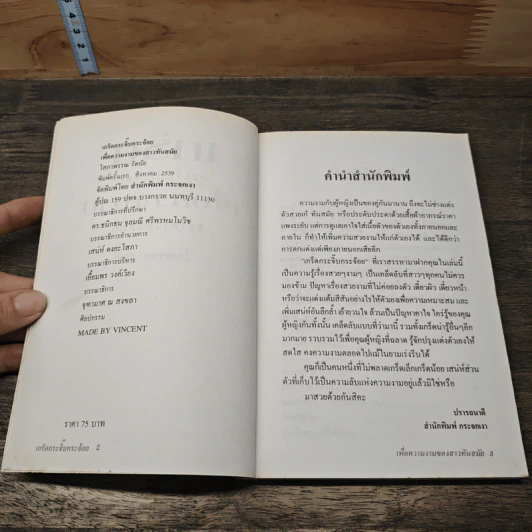 เกร็ดกระจิ๊บกระจ้อย
เพื่อความงามของสาวทันสมัย
โสภาพรรณ รัตนัย
พิมพ์ครั้งแรก, สิงหาคม 2539
จัดพิมพ์โดย สำนักพิมพ์ กระจกเงา
ตู้ปณ 159 ปทจ บางกรวย นนทบุรี 11130
บรรณาธิการที่ปรึกษา
ดร.ธนิกธน จุลมณี ศรีพรหมโมวิช
บรรณาธิการอำนวยการ
เสน่ห์ คงจะโสภา
บรรณาธิการบริหาร
เอี๊ยมพร วงศ์เวียง
บรรณาธิการ
จุฑามาศ ณ สงขลา
ศิลปกรรม
MADE BY VINCENT
ราคา 75 บาท
เกร็ดกระจิ๊บกระจ้อย 2
คำนำสำนักพิมพ์
ความงามกับผู้หญิงเป็นของคู่กันมานาน ถึงจะไม่ช่างแต่ง
ตัวสวยเก๋ ทันสมัย หรือประดับประดาด้วยเสื้อผ้าอาภรณ์ราคา
แพงระยับ แต่การดูแลเอาใจใส่เนื้อตัวของตัวเองทั้งภายนอกและ
ภายใน ก็ทำให้เพิ่มความสวยงามให้แก่ตัวเองได้ และได้ดีกว่า
การตกแต่งแต่เพียงภายนอกเสียอีก
"เกร็ดกระจิ๊บกระจ้อย" ที่เราสรรหามาฝากคุณในเล่มนี้
เป็นความรู้เรื่องสวยๆงามๆ เป็นเคล็ดลับที่สาวๆทุกคนไม่ควร
มองข้าม ปัญหาเรื่องสวยงามที่ไม่ค่อยลงตัว เดี๋ยวผิว เดี๋ยวหน้า
หรือว่าจะแต่งแต้มสีสันอย่างไรให้ตัวเองเพื่อความเหมาะสม และ
เพิ่มเสน่ห์อันลึกล้ำ เย้ายวนใจ ล้วนเป็นปัญหาคาใจ ใคร่รู้ของคุณ
ผู้หญิงกันทั้งนั้น เคล็ดลับแบบที่ว่ามานี้ รวมทั้งเกร็ดน่ารู้อื่นๆอีก
มากมาย รวบรวมไว้เพื่อคุณผู้หญิงที่ฉลาด รู้จักปรุงแต่งตัวเองให้
สดใส คงความงามตลอดไปแม้ในยามเร่งรีบได้
คุณก็เป็นคนหนึ่งที่ไม่พลาดเกร็ดเล็กเกร็ดน้อย เสน่ห์ส่วน
ตัวที่เก็บไว้เป็นความลับแห่งความงามอยู่แล้วมิใช่หรือ
มาสวยด้วยกันสิคะ
ปรารถนาดี
สำนักพิมพ์ กระจกเงา
เพื่อความงามของสาวทันสมัย 3